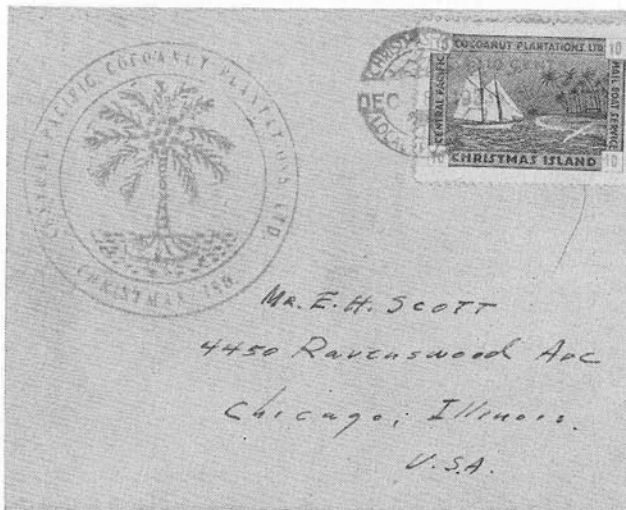 CENTRAL PACIFIC COCOANUT PLANTATIONS LTD.
CHRISTMAS ISD.
CHRISTMAS
DEC
LOCAL
10 COCOANUT PLANTATIONS LTD 10
CENTRAL PACIFIC
MAIL BOAT SERVICE
10 CHRISTMAS ISLAND 10
MR. E. H. SCOTT
4450 Ravenswood Ave
Chicago, Illinois.
U.S.A.